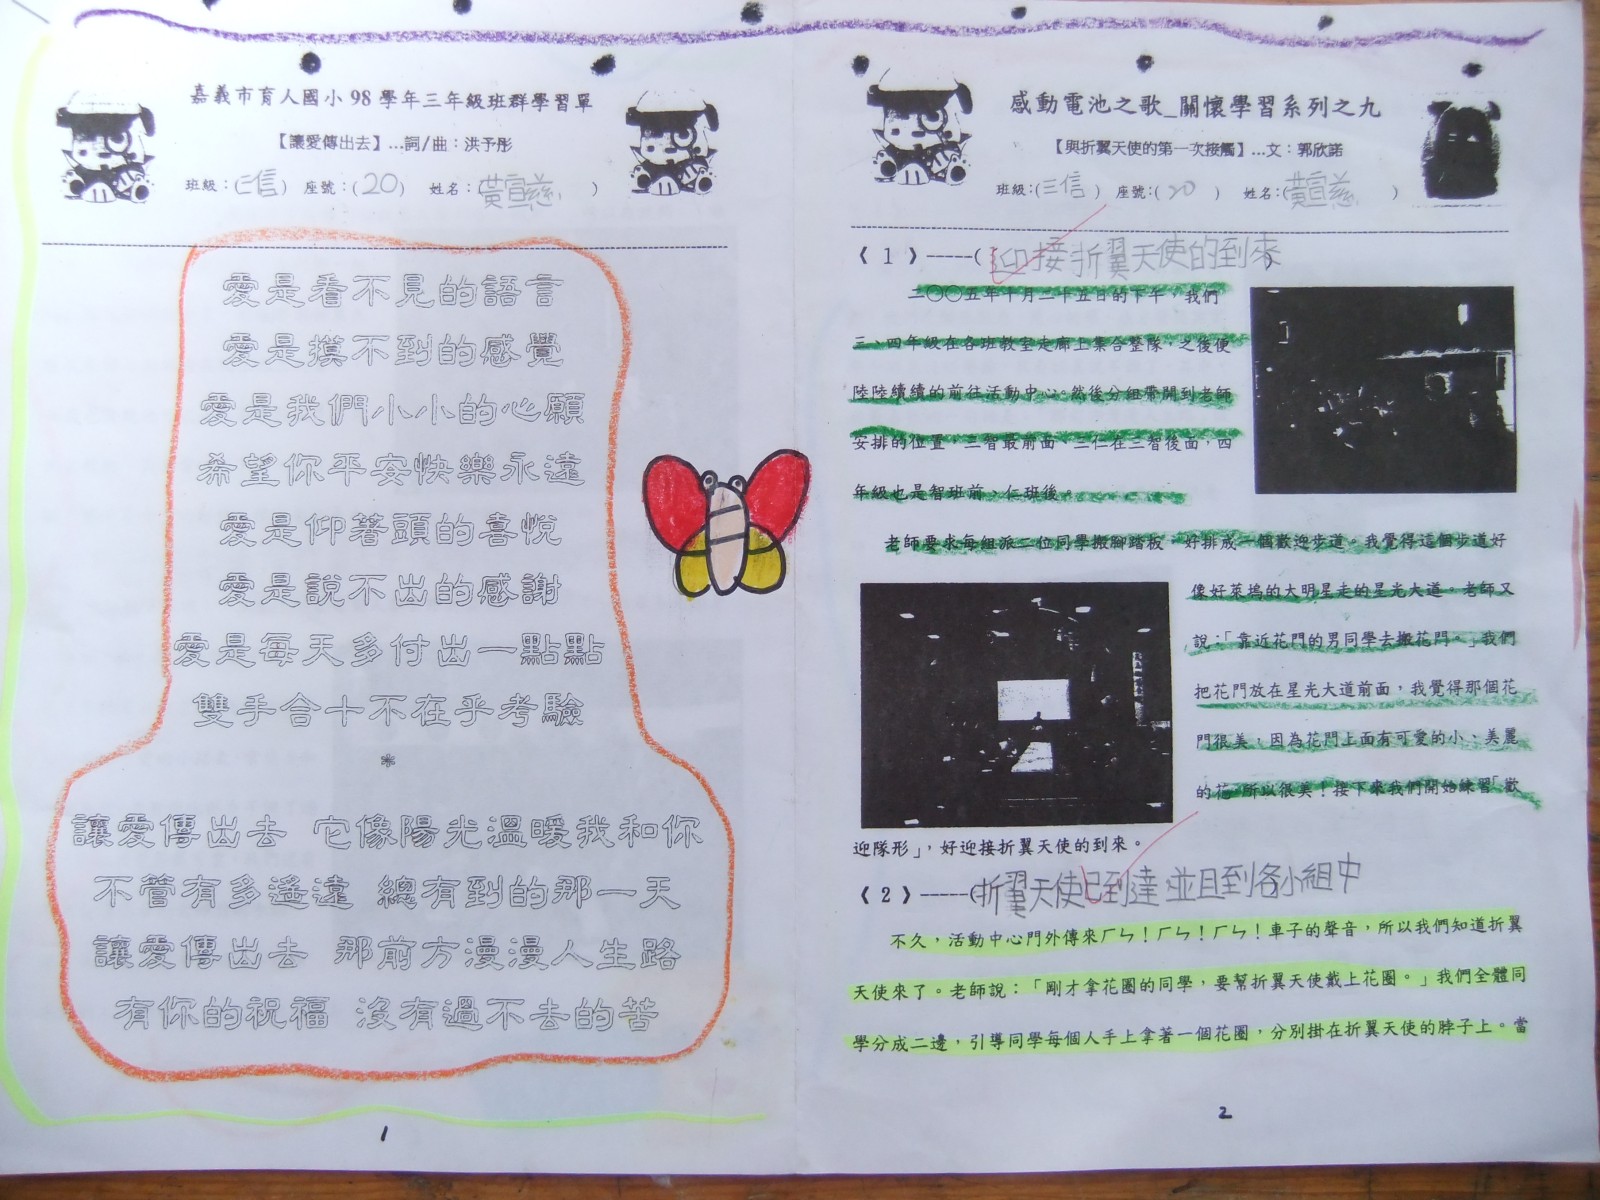 嘉義市育人國小98學年三年級班群學習單
【讓愛傳出去】…詞/曲：洪予彤
班級：(三信) 座號：(20) 姓名：(黃宣慈)
愛是看不見的語言
愛是摸不到的感覺
愛是我們小小的心願
希望你平安快樂永遠
愛是仰著頭的喜悅
愛是說不出的感謝
愛是每天多付出一點點
雙手合十不在乎考驗
*
讓愛傳出去 它像陽光溫暖我和你
不管有多遙遠 總有到的那一天
讓愛傳出去 那前方漫漫人生路
有你的祝福 沒有過不去的苦
1
感動電池之歌_關懷學習系列之九
【與折翼天使的第一次接觸】…文：郭欣諾
班級：(三信) 座號：(20) 姓名：(黃宣慈)
《1》-----(迎接折翼天使的到來
二〇〇五年十月二十五日的下午，我們
三、四年級在各班教室走廊上集合整隊，之後便
陸陸續續的前往活動中心。然後分組帶開到老師
安排的位置，三智最前面，三仁在三智後面，四
年級也是智班前、仁班後。
老師要求每組派二位同學搬腳踏板，好排成一個歡迎步道。我覺得這個步道好
像好萊塢的大明星走的星光大道。老師又
說：「靠近花門的男同學去搬花門。」我們
把花門放在星光大道前面，我覺得那個花
門很美，因為花門上面有可愛的小、美麗
的花，所以很美！接下來我們開始練習「歡
迎隊形」，好迎接折翼天使的到來。
《2》-----(折翼天使已到達並且到各小組中
不久，活動中心門外傳來ㄏㄣ！ㄏㄣ！ㄏㄣ！車子的聲音，所以我們知道折翼
天使來了。老師說：「剛才拿花圈的同學，要幫折翼天使戴上花圈。」我們全體同
學分成二邊，引導同學每個人手上拿著一個花圈，分別掛在折翼天使的脖子上。當
2